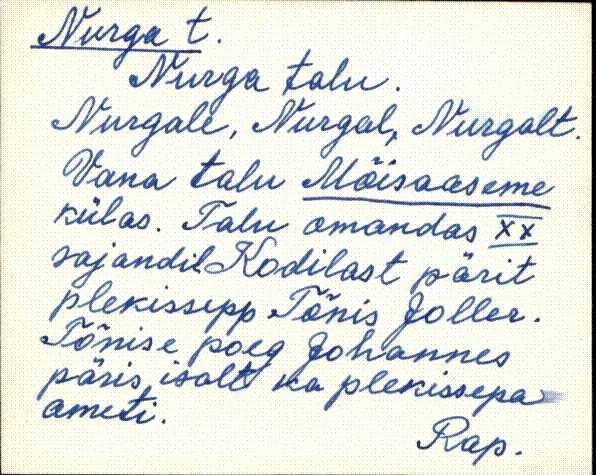 Nurga t.
Nurga talu.
Nurgale, Nurgal, Nurgalt.
Vana talu Mõisaaseme
külas. Talu omandas XX
sajandil Kodilast pärit
plekissepp Tõnis Joller.
Tõnise poeg Johannes
päris isalt ka plekissepa
ameti.
Rap.